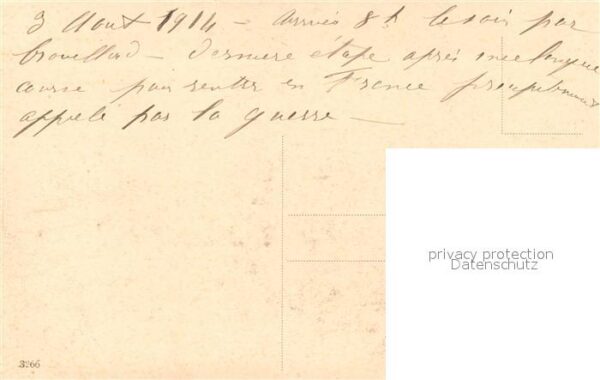 3 Aout 1914 - Arrivés 8h le soir par
brouillard - dernière étape après une longue
course pour rentrer en France
appelé par la guerre -
privacy protection
Datenschutz
3266